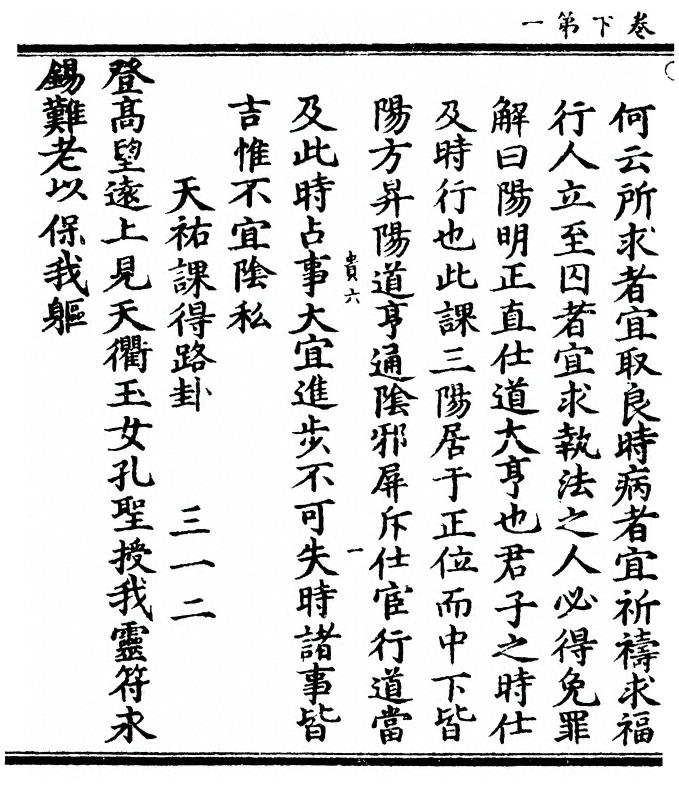 卷下第一
何云所求者宜取良時病者宜祈禱求福
行人立至囚者宜求執法之人必得免罪
解曰陽明正直仕道大亨也君子之時仕
及時行也此課三陽居于正位而中下皆
陽方昇陽道亨通陰邪屏斥仕宦行道當
貴六
一
及此時占事大宜進步不可失時諸事皆
吉惟不宜陰私
天祐課得路卦 三一二
登高望遠上見天衢玉女孔聖授我靈符永
錫難老以保我軀